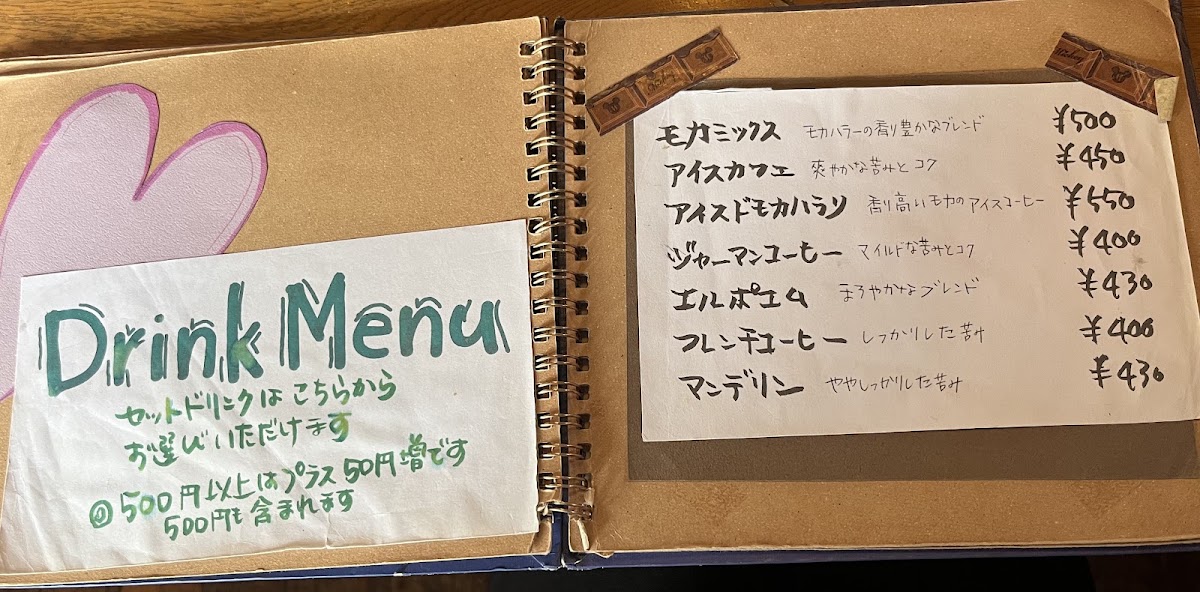 Drink Menu
セットドリンクはこちらから
お選びいただけます
◎500円以上はプラス50円増です
500円も含まれます
モカミックス モカハラーの香り豊かなブレンド ¥500
アイスカフェ 爽やかな苦みとコク ¥450
アイスドモカハラリ 香り高いモカのアイスコーヒー ¥550
ジャーマンコーヒー マイルドな苦みとコク ¥400
エルポエム まろやかなブレンド ¥430
フレンチコーヒー しっかりした苦み ¥400
マンデリン ややしっかりした苦み ¥430